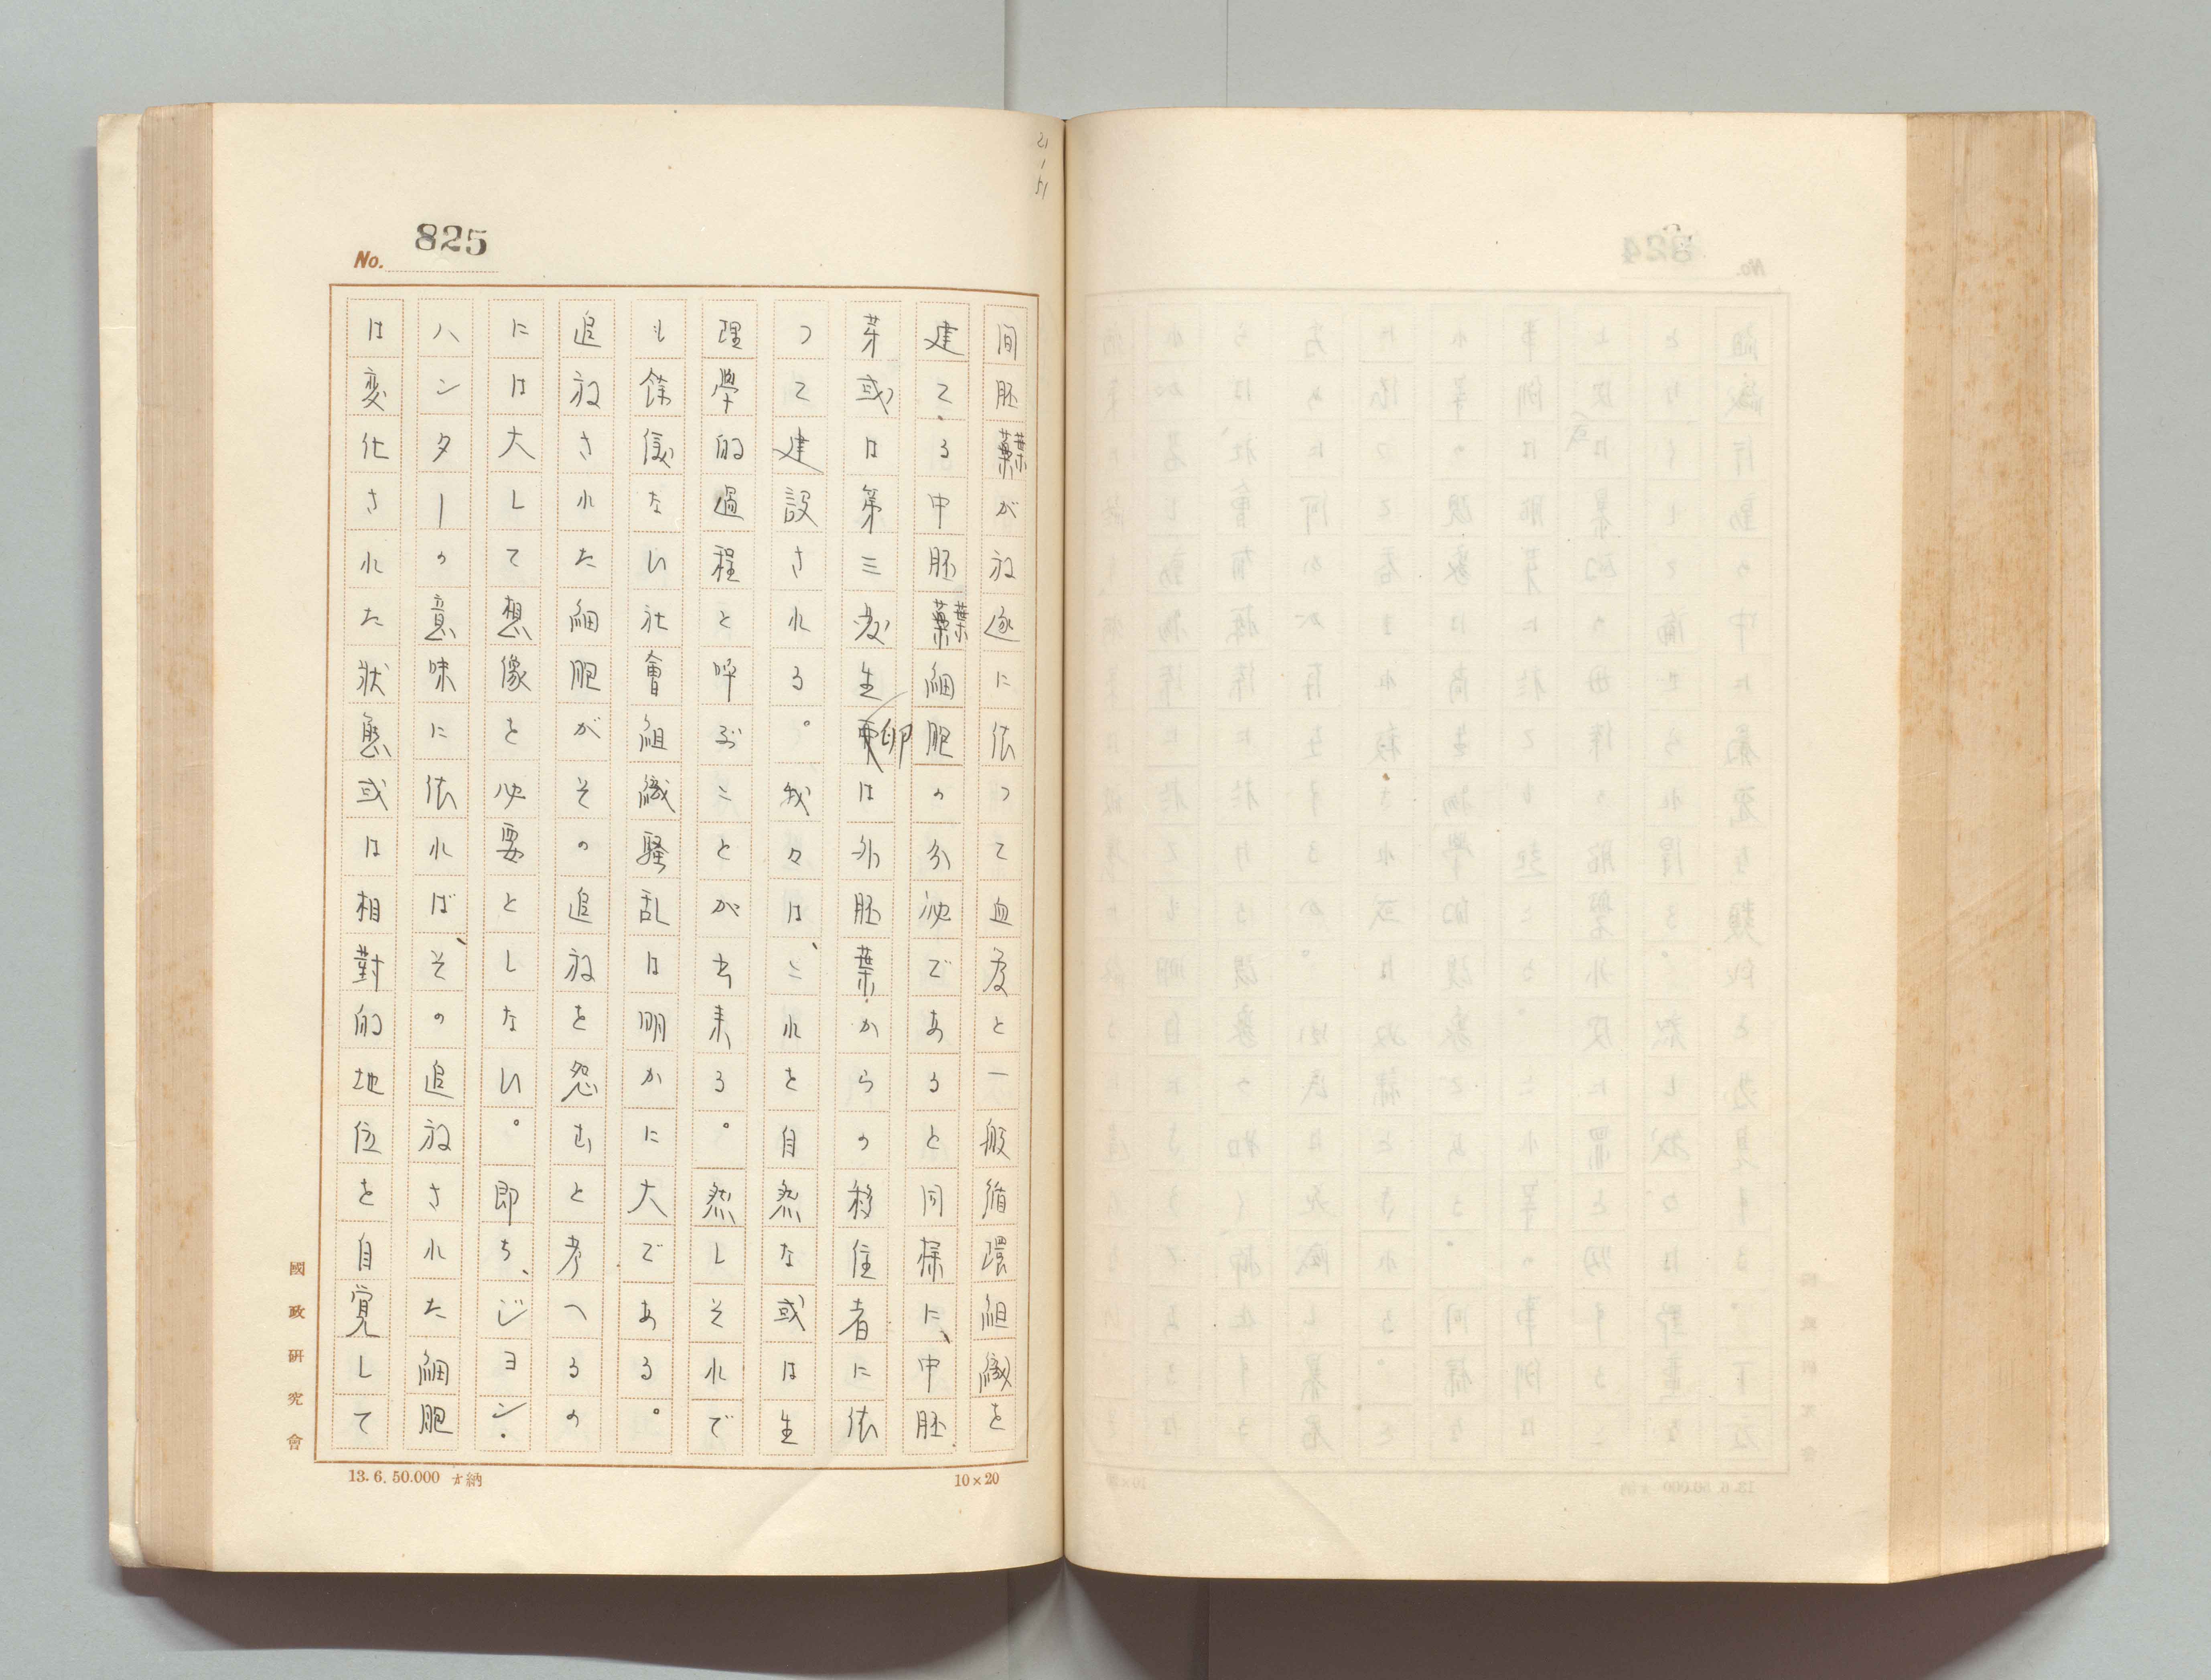 No. 825
間胚葉が放逐に依つて血液と一般循環組織を
建てる中胚葉細胞の分泌であると同様に、中胚
芽或は第三発生卵は外胚葉からの移住者に依
つて建設される。我々は、これを自然な或は生
理學的過程と呼ぶことが出来る。然しそれで
も餘儀ない社會組織騒乱は明かに大である。
追放された細胞がその追放を怨むと考へるの
には大して想像を必要としない。即ち、ジヨン・
ハンターの意味に依れば、その追放された細胞
は変化された状態或は相對的地位を自覚して
國政研究會
13.6.50.000 納
10×20